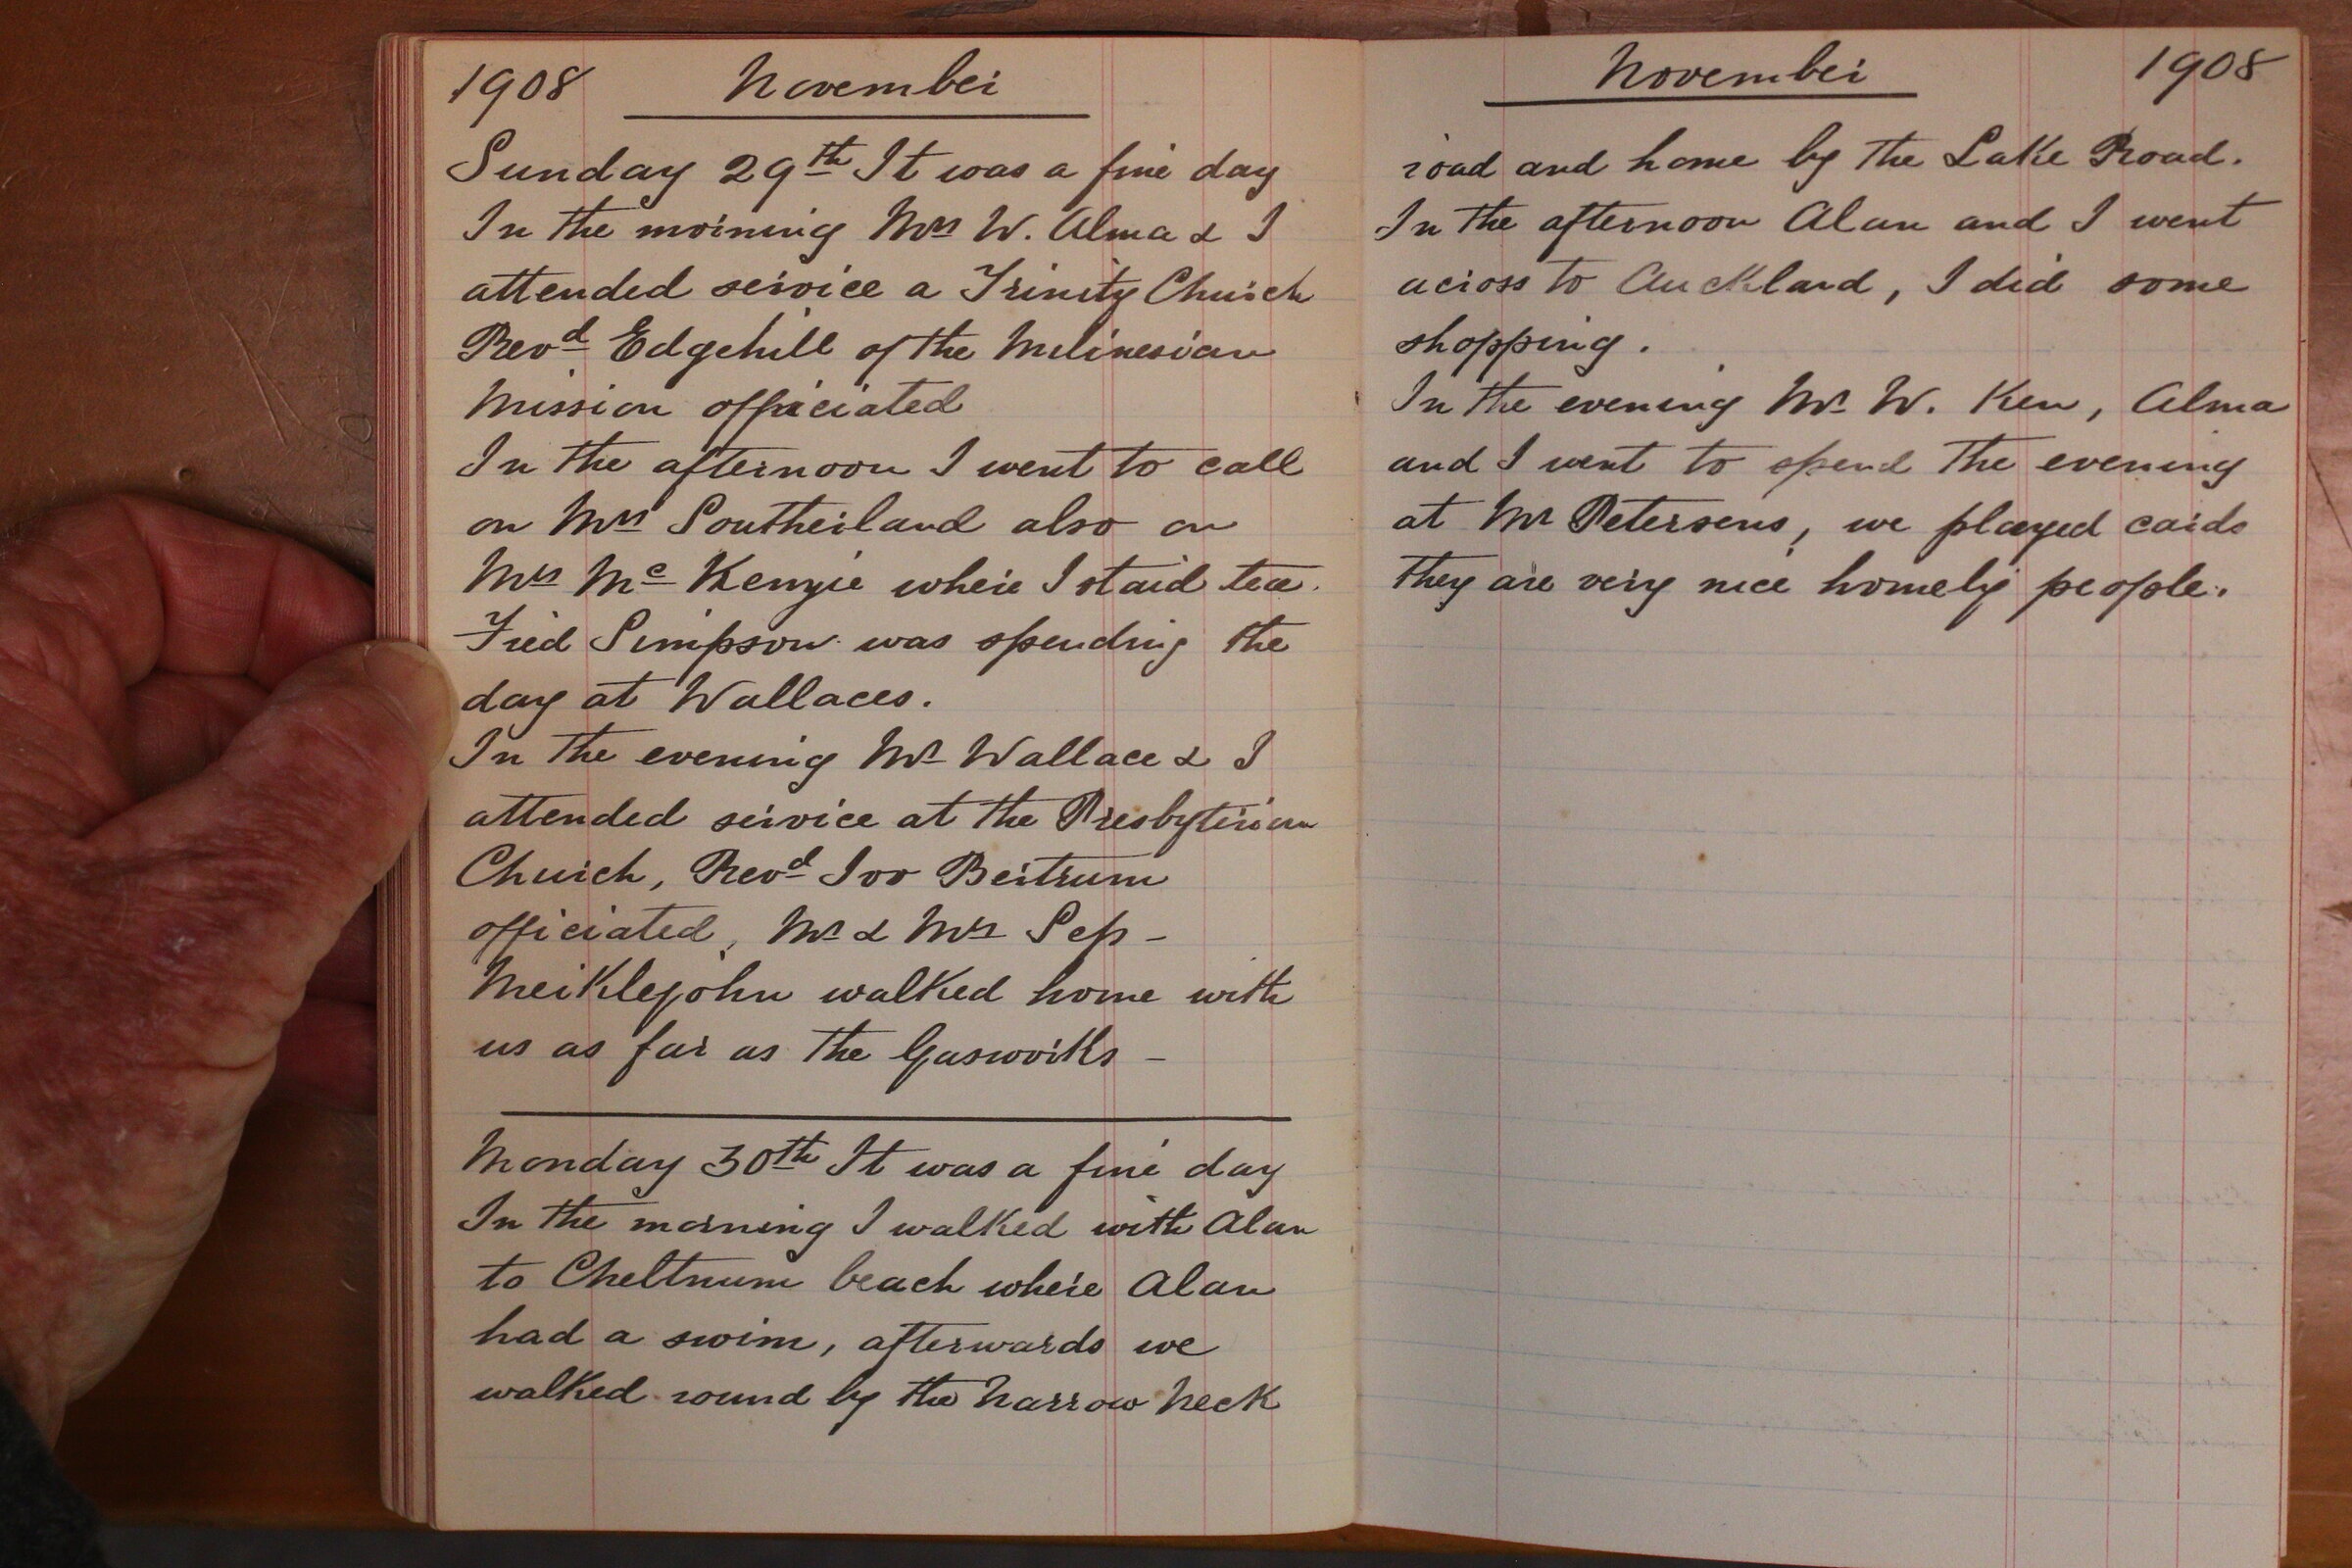 1908 November
Sunday 29th It was a fine day
In the morning Mrs W. Alma & I
attended service a Trinity Church
Revd Edgehill of the Milinesian
Mission officiated
In the afternoon I went to call
on Mrs Southerland also on
Mrs Mc Kenzie where I staid tea.
Fred Simpson was spending the
day at Wallaces.
In the evening Mr Wallace & I
attended service at the Presbyterian
Church, Revd Ivo Bertrum
officiated, Mr & Mrs Sep -
Meiklejohn walked home with
us as far as the Gasworks -
Monday 30th It was a fine day
In the morning I walked with Alan
to Cheltnum beach where Alan
had a swim, afterwards we
walked round by the Narrow Neck
November 1908
road and home by the Lake Road.
In the afternoon Alan and I went
across to Auckland, I did some
shopping.
In the evening Mr W. Ken, Alma
and I went to spend the evening
at Mr Petersens, we played cards
they are very nice homely people.